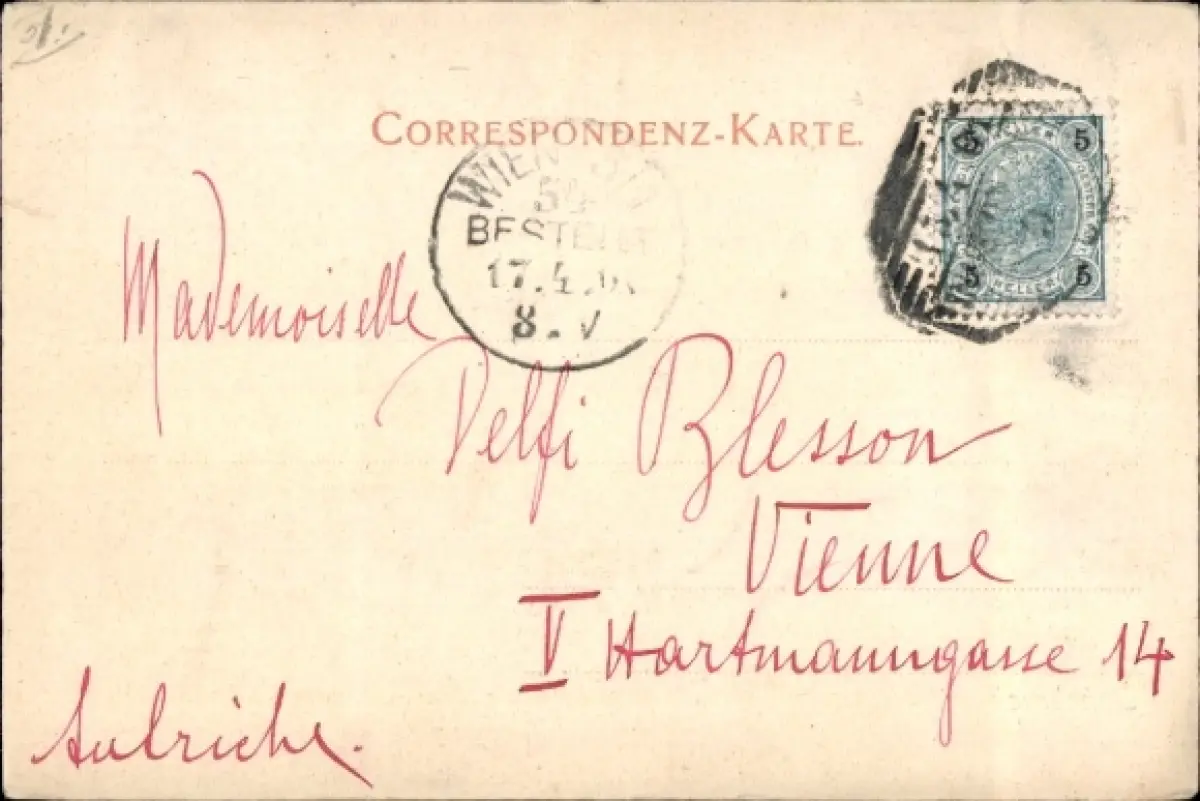 CORRESPONDENZ-KARTE.
5 5
5 HELLER 5
WIEN
54
BESTELLT
17.4.
8. V
Mademoiselle
Delfi Blesson
Vienne
V Hartmanngasse 14
Autriche.